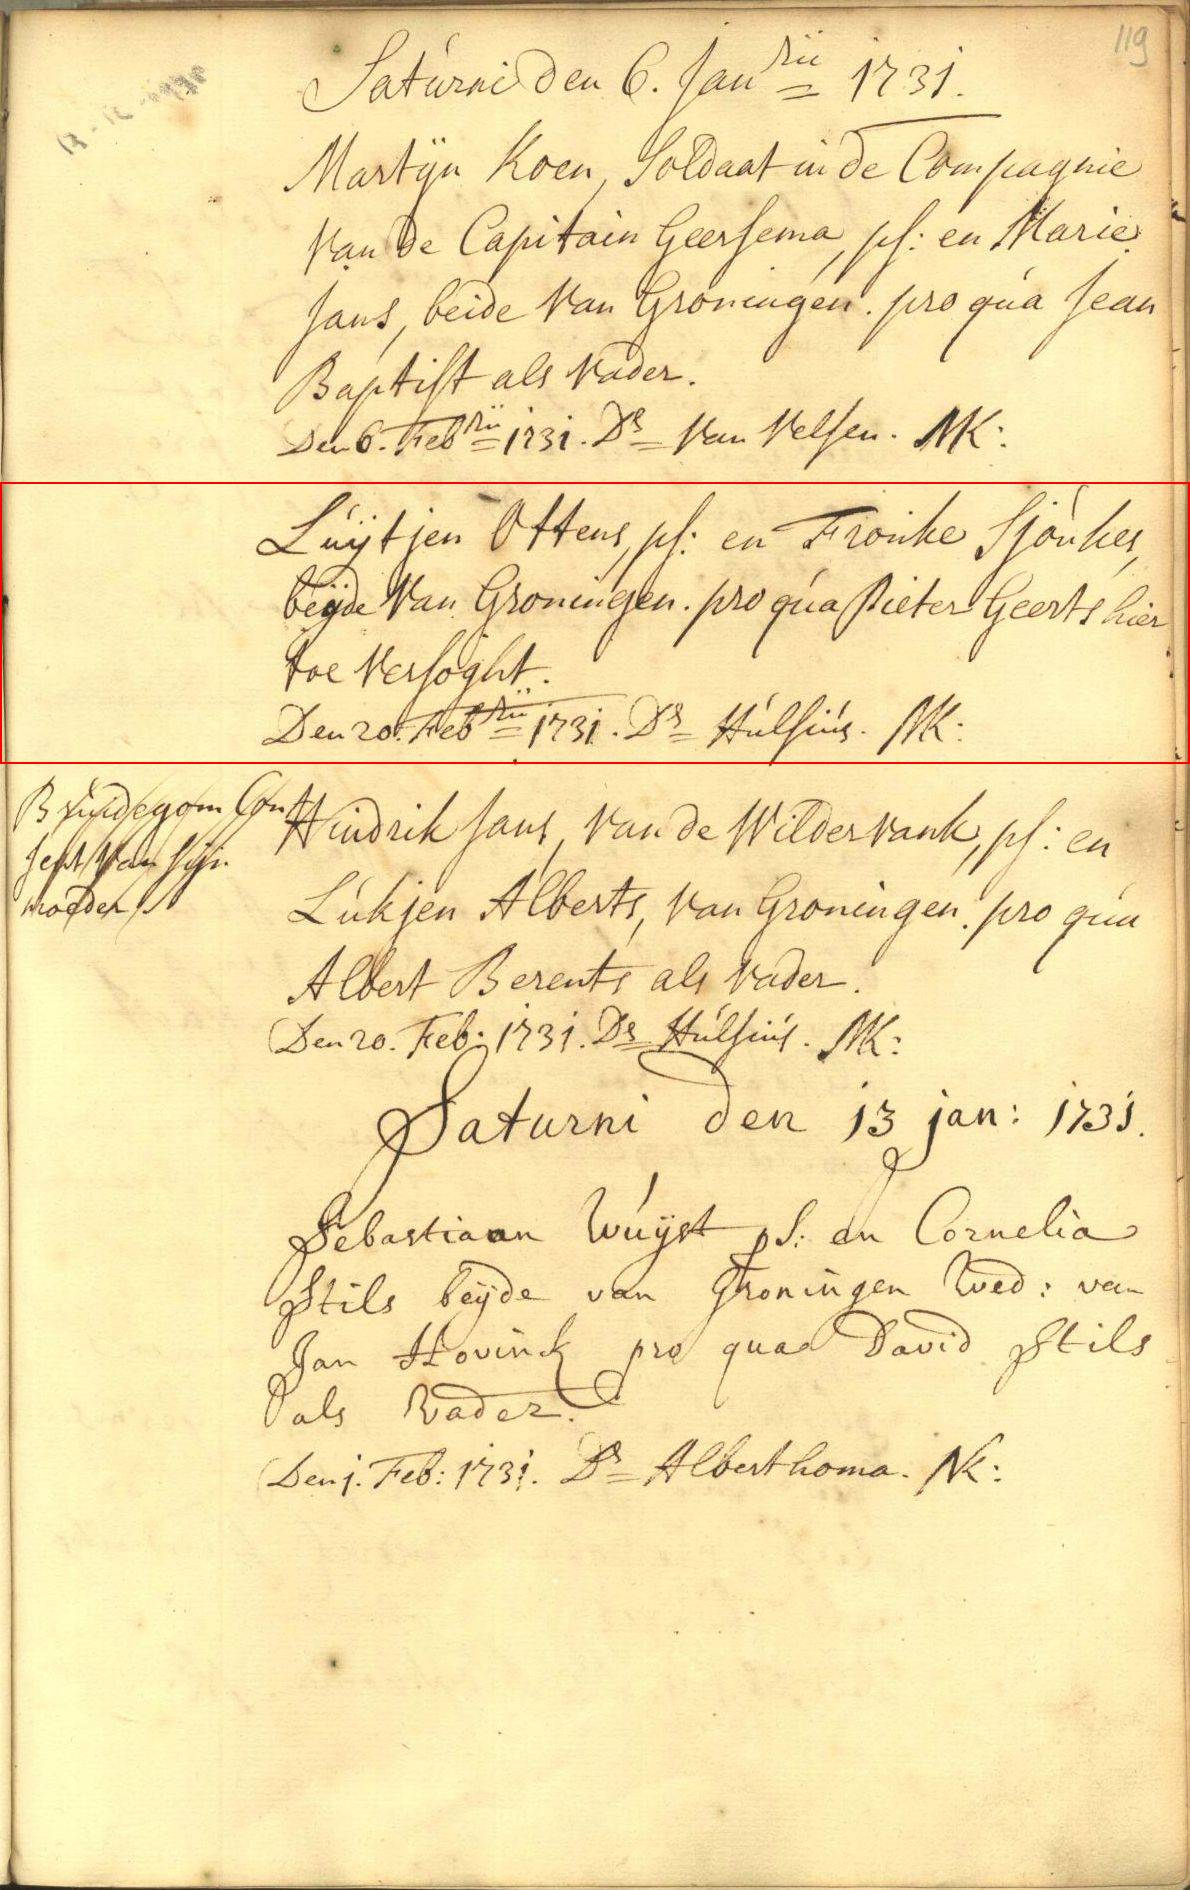 119
Saturni den 6. Jan rii 1731.
Martijn Koen, Soldaat in de Compagnie
van de Capitain Geersema, ps: en Marie
Jans, beide van Groningen. pro qua Jean
Baptist als vader.
Den 6. Feb rii 1731. Ds van Velsen. NK:
Luijtjen Ottens, ps: en Frouke Sjoukes,
beijde van Groningen. pro qua Pieter Geerts hier
toe versoght.
Den 20. Feb rii 1731. Ds Hulsius. NK:
Bruidegom Con
sent van sijn
moeder
Hindrik Jans, van de Wildervank, ps: en
Lukjen Alberts, van Groningen. pro qua
Albert Berents als vader.
Den 20. Feb: 1731. Ds Hulsius. NK:
Saturni den 13 jan: 1731.
Sebastiaan Wuijst ps: en Cornelia
Stils beijde van Groningen Wed: van
Jan Hovinck pro qua David Stils
als Vader.
Den 1. Feb: 1731. Ds Alberthoma. NK: